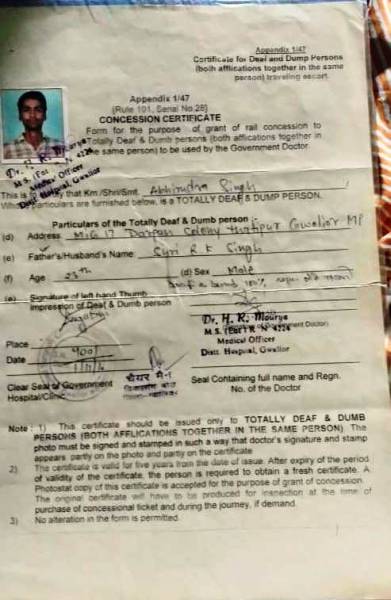 Appendix 1/47
Certificate for Deaf and Dump Persons
(both afflications together in the same
person) traveling escort.
Appendix 1/47
(Rule 101, Serial No.28)
CONCESSION CERTIFICATE
Form for the purpose of grant of rail concession to
Totally Deaf & Dumb persons (both afflications together in
the same person) to be used by the Government Doctor.
Dr. H. R. Mourya
M.S. (Ent) R N 4226
Medical Officer
Distt. Hospital, Gwalior
This is to certify that Km./Shri/Smt. Abhindra Singh
Whose particulars are furnished below, is a TOTALLY DEAF & DUMP PERSON.
Particulars of the Totally Deaf & Dumb person
(d) Address MIG 17 Darpan Colony thatipur Gwalior MP
(e) Father's/Husband's Name : Syri R K Singh
(f) Age 25 (d) Sex Male
(e) Signature of left hand Thumb
Impression of Deaf & Dumb person
Dr. H. R. Mourya
M.S. (Ent) R N 4226
Medical Officer
Distt. Hospital, Gwalior
Place :
Date
Clear Seal of Government
Hospital/Clinic
Seal Containing full name and Regn.
No. of the Doctor
Note : 1) This certificate should be issued only to TOTALLY DEAF & DUMB
PERSONS (BOTH AFFLICATIONS TOGETHER IN THE SAME PERSON). The
photo must be signed and stamped in such a way that doctor's signature and stamp
appears partly on the photo and partly on the certificate
2) The certificate is valid for five years from the date of issue. After expiry of the period
of validity of the certificate, the person is required to obtain a fresh certificate. A
Photostat copy of this certificate is accepted for the purpose of grant of concession.
The original certificate will have to be produced for inspection at the time of
purchase of concessional ticket and during the journey, if demand.
3) No alteration in the form is permitted.